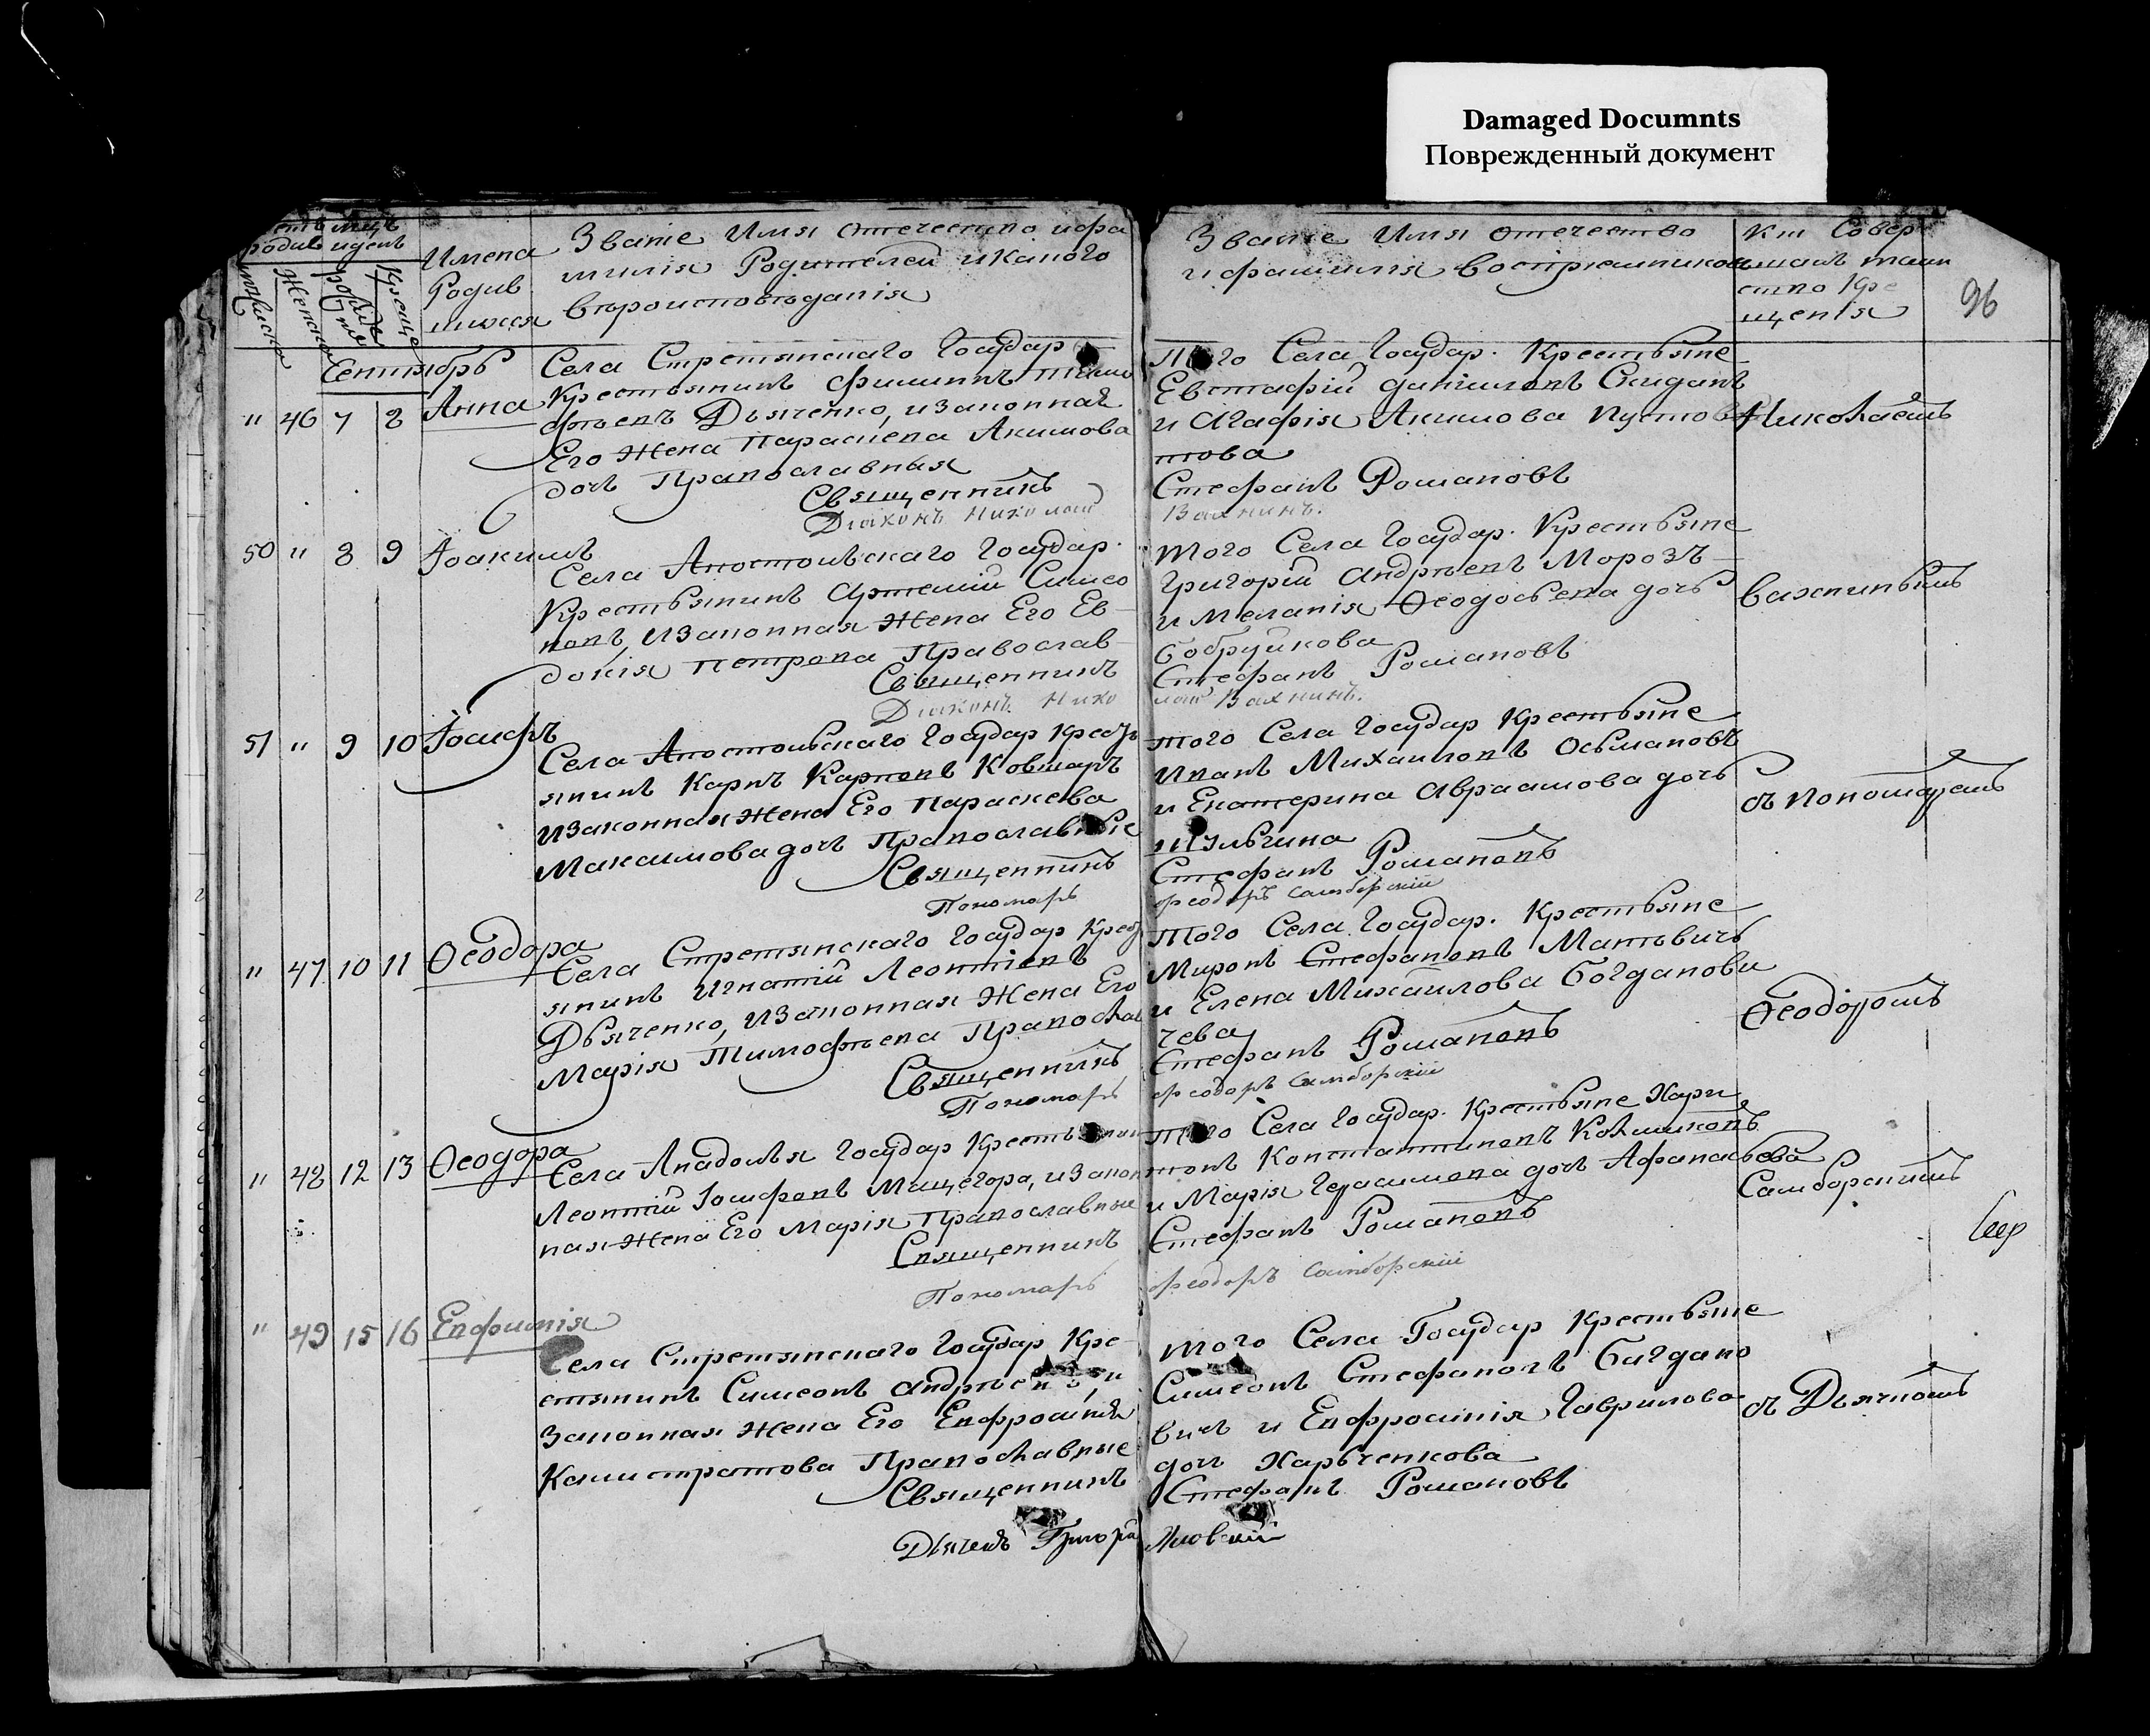 Damaged Documnts
Поврежденный документ
Имена
Родив
шихся
Званіе Имя отечество ифа
милія Родителей икакого
вѣроисповѣданія
Званіе Имя отечество
и фамилія воспріемниковъ
Кто Совер
шалъ таин
ство Кре
щенія
96
Сентябрь
" 46 7 8 Анна
Села Стретинскаго Государ
Крестьянинъ Филиппъ Тимо
фѣевъ Дьяченко, изаконная
Его Жена Параскева Акимова
дочь Православная
Священникъ
Діаконъ Николай
Того Села Государ. Крестьяне
Евстафій Даніиловъ
и Агафія Акимова
това
Стефанъ Романовъ
Вахнинъ.
Николаемъ
50 " 8 9 Іоакимъ
Села Апостольскаго Государ.
Крестьянинъ Артемій Симео
новъ, изаконная Жена Его Ев
докія Петрова Православ
Священникъ
Діаконъ Нико
того Села Государ. Крестьяне
Григорій Андрѣевъ Морозъ
и Меланія Ѳеодосьева дочь
Бобруйкова
Стефанъ Романовъ
лай Вахнинъ.
Вахнинымъ
51 " 9 10 Іосифъ
Села Апостольскаго Государ Кресть
янинъ Карпъ Карповъ Ковшаръ
изаконная Жена Его Параскева
Максимова дочь Православные
Священникъ
Пономарь
того Села Государ Крестьяне
Иванъ Михаиловъ Осьмановъ
и Екатерина Авраамова дочь
Стефанъ Романовъ
Феодоръ Самборскій
съ Пономаремъ
" 47 10 11 Ѳеодора
Села Стретинскаго Государ Кресть
янинъ Игнатій Леонтіевъ
Дьяченко, изаконная Жена Его
Марія Тимофѣева Православ
Священникъ
Пономарь
Того Села Государ. Крестьяне
Миронъ Стефановъ Матвѣичъ
и Елена Михаилова Богданови
чева
Стефанъ Романовъ
Феодоръ Самборскій
Ѳеодоромъ
" 48 12 13 Ѳеодора
Села Анадолья Государ Крестьянинъ
Леонтій Іосифовъ Мащегора, изакон
ная Жена Его Марія Православные
Священникъ
Пономарь
Того Села Государ. Крестьяне Хари
тонъ Константиновъ Колмиковъ
и Марія Герасимова дочь Афанасьева
Стефанъ Романовъ
Феодоръ Самборскій
Самборскимъ
" 49 15 16 Евфимія
Села Стретинскаго Государ Кре
стянинъ Симеонъ Андрѣевъ, и
Законная Жена Его Евфросинія
Калистратова Православные
Священникъ
Дьячекъ Григорій
того Села Государ Крестьяне
Симеонъ Стефановъ Багдано
вичъ и Евфросинія Гаврилова
дочь Харьченкова
Стефанъ Романовъ
съ Дьячкомъ